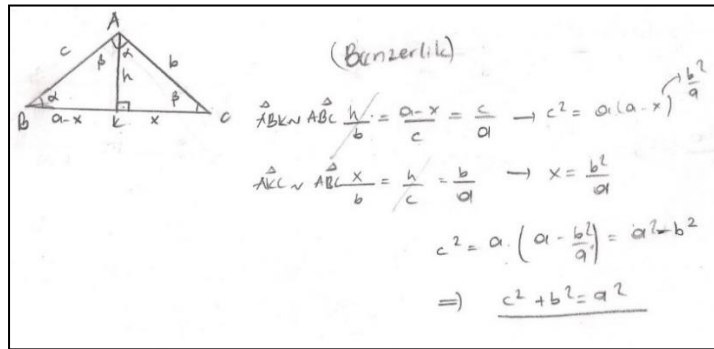 A
c b
β α
h
α β
B a-x K x C
(Benzerlik)
b²/a
ABK ~ ABC h/b = a-x/c = c/a → c² = a(a-x)
AKC ~ ABC x/b = h/c = b/a → x = b²/a
c² = a.(a - b²/a) = a² - b²
⇒ c² + b² = a²